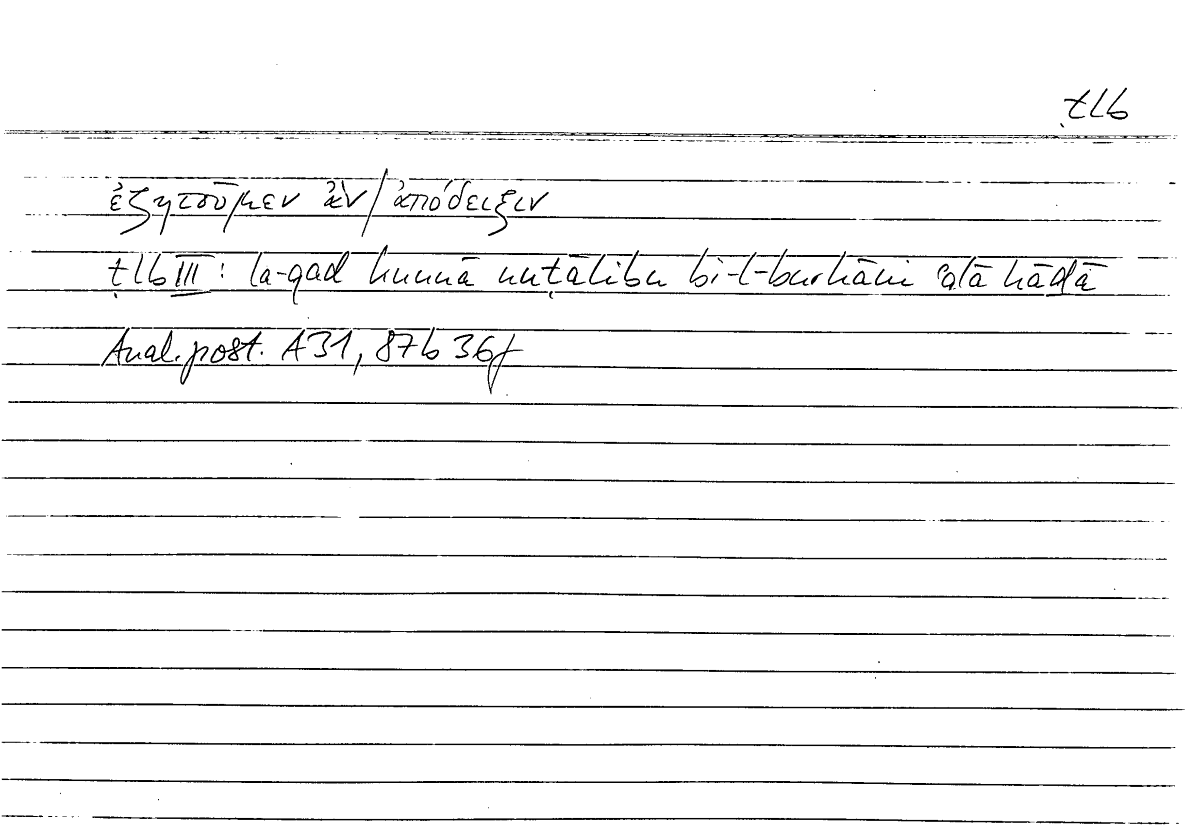 ṭlb
ἐζητοῦμεν ἂν / ἀπόδειξιν
ṭlb III : la-qad kunnā nuṭālibu bi-l-burhāni ʿalā hāḏā
Anal. post. A 31, 87b 36f